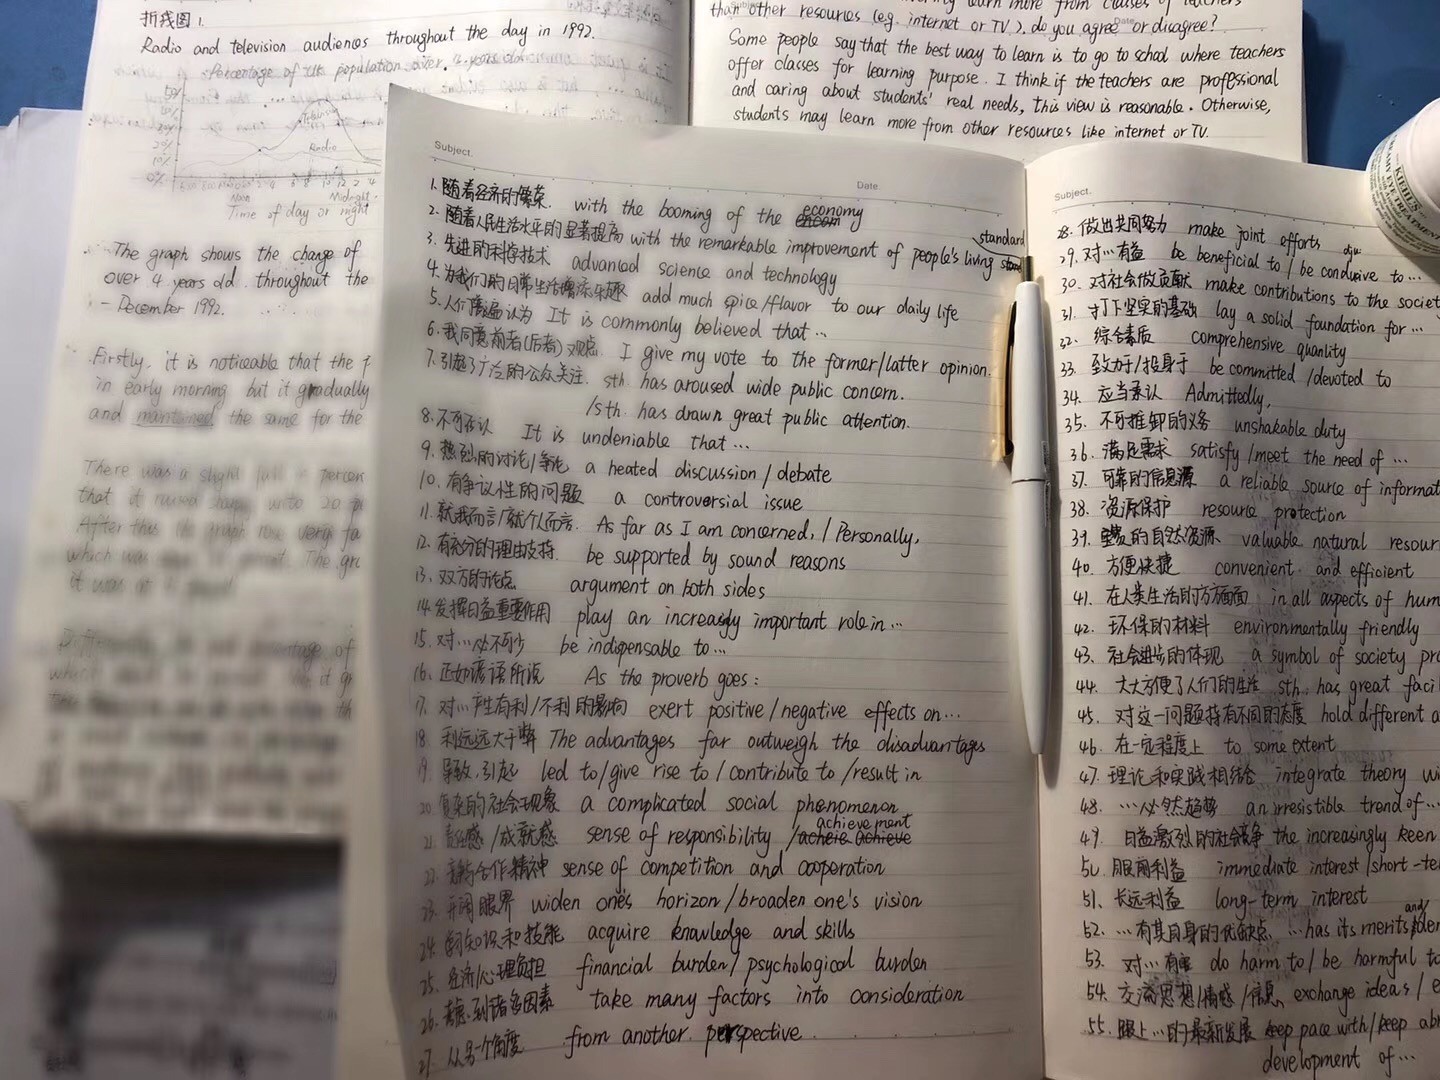 折线图1.
Radio and television audiences throughout the day in 1992.
Percentage of the population over 4 years old
Television
Radio
Noon
Midnight
Time of day or night
The graph shows the change of
over 4 years old throughout the
- December 1992.
Firstly, it is noticeable that the
in early morning but it gradually
and maintained the same for the
There was a slight fall
that it
After this
which was
learn more from classes of teachers
than other resources (e.g. internet or TV), do you agree or disagree?
Some people say that the best way to learn is to go to school where teachers
offer classes for learning purpose. I think if the teachers are professional
and caring about students' real needs, this view is reasonable. Otherwise,
students may learn more from other resources like internet or TV.
Subject.
Date.
1. 随着经济的繁荣. with the booming of the economy
2. 随着人民生活水平的显著提高 with the remarkable improvement of people's living standard
3. 先进的科学技术 advanced science and technology
4. 为我们的日常生活增添乐趣 add much spice/flavor to our daily life
5. 人们普遍认为 It is commonly believed that…
6. 我同意前者(后者)观点. I give my vote to the former/latter opinion.
7. 引起了广泛的公众关注. sth. has aroused wide public concern.
/sth. has drawn great public attention.
8. 不可否认 It is undeniable that…
9. 热烈的讨论/争论 a heated discussion/debate
10. 有争议性的问题 a controversial issue
11. 就我而言/就个人而言. As far as I am concerned, / Personally,
12. 有充分的理由支持. be supported by sound reasons
13. 双方的论点 argument on both sides
14. 发挥日益重要作用 play an increasingly important role in…
15. 对…必不可少 be indispensable to…
16. 正如谚语所说 As the proverb goes:
17. 对…产生有利/不利的影响 exert positive/negative effects on…
18. 利远远大于弊 The advantages far outweigh the disadvantages
19. 导致,引起 led to/give rise to/contribute to/result in
20. 复杂的社会现象 a complicated social phenomenon
21. 责任感/成就感 sense of responsibility/achievement
22. 竞争合作精神 sense of competition and cooperation
23. 开阔眼界 widen one's horizon/broaden one's vision
24. 知识和技能 acquire knowledge and skills
25. 经济/心理负担 financial burden/psychological burden
26. 考虑到诸多因素 take many factors into consideration
27. 从另一个角度 from another perspective
Subject.
28. 做出共同努力 make joint efforts
29. 对…有益 be beneficial to/be conducive to…
30. 对社会做贡献 make contributions to the society
31. 打下坚实的基础 lay a solid foundation for…
32. 综合素质 comprehensive quantity
33. 致力于/投身于 be committed/devoted to
34. 应当承认 Admittedly,
35. 不可推卸的义务 unshakable duty
36. 满足需求 satisfy/meet the need of…
37. 可靠的信息源 a reliable source of informat
38. 资源保护 resource protection
39. 的自然资源 valuable natural resour
40. 方便快捷 convenient and efficient
41. 在人类生活的方方面面 in all aspects of hum
42. 环保的材料 environmentally friendly
43. 社会进步的体现 a symbol of society pro
44. 大大方便了人们的生活 sth. has great facil
45. 对这一问题持有不同的态度 hold different a
46. 在一定程度上 to some extent
47. 理论和实践相结合 integrate theory wi
48. …必然趋势 an irresistible trend of…
49. 日益激烈的社会竞争 the increasingly keen
50. 眼前利益 immediate interest/short-te
51. 长远利益 long-term interest
52. …有其自身的优缺点 …has its merits and de
53. 对…有害 do harm to/be harmful to
54. 交流思想/情感/信息 exchange ideas/e
55. 跟上…的最新发展 keep pace with/keep abr
development of…
KIEHL'S
CREAMY EYE TREATMENT